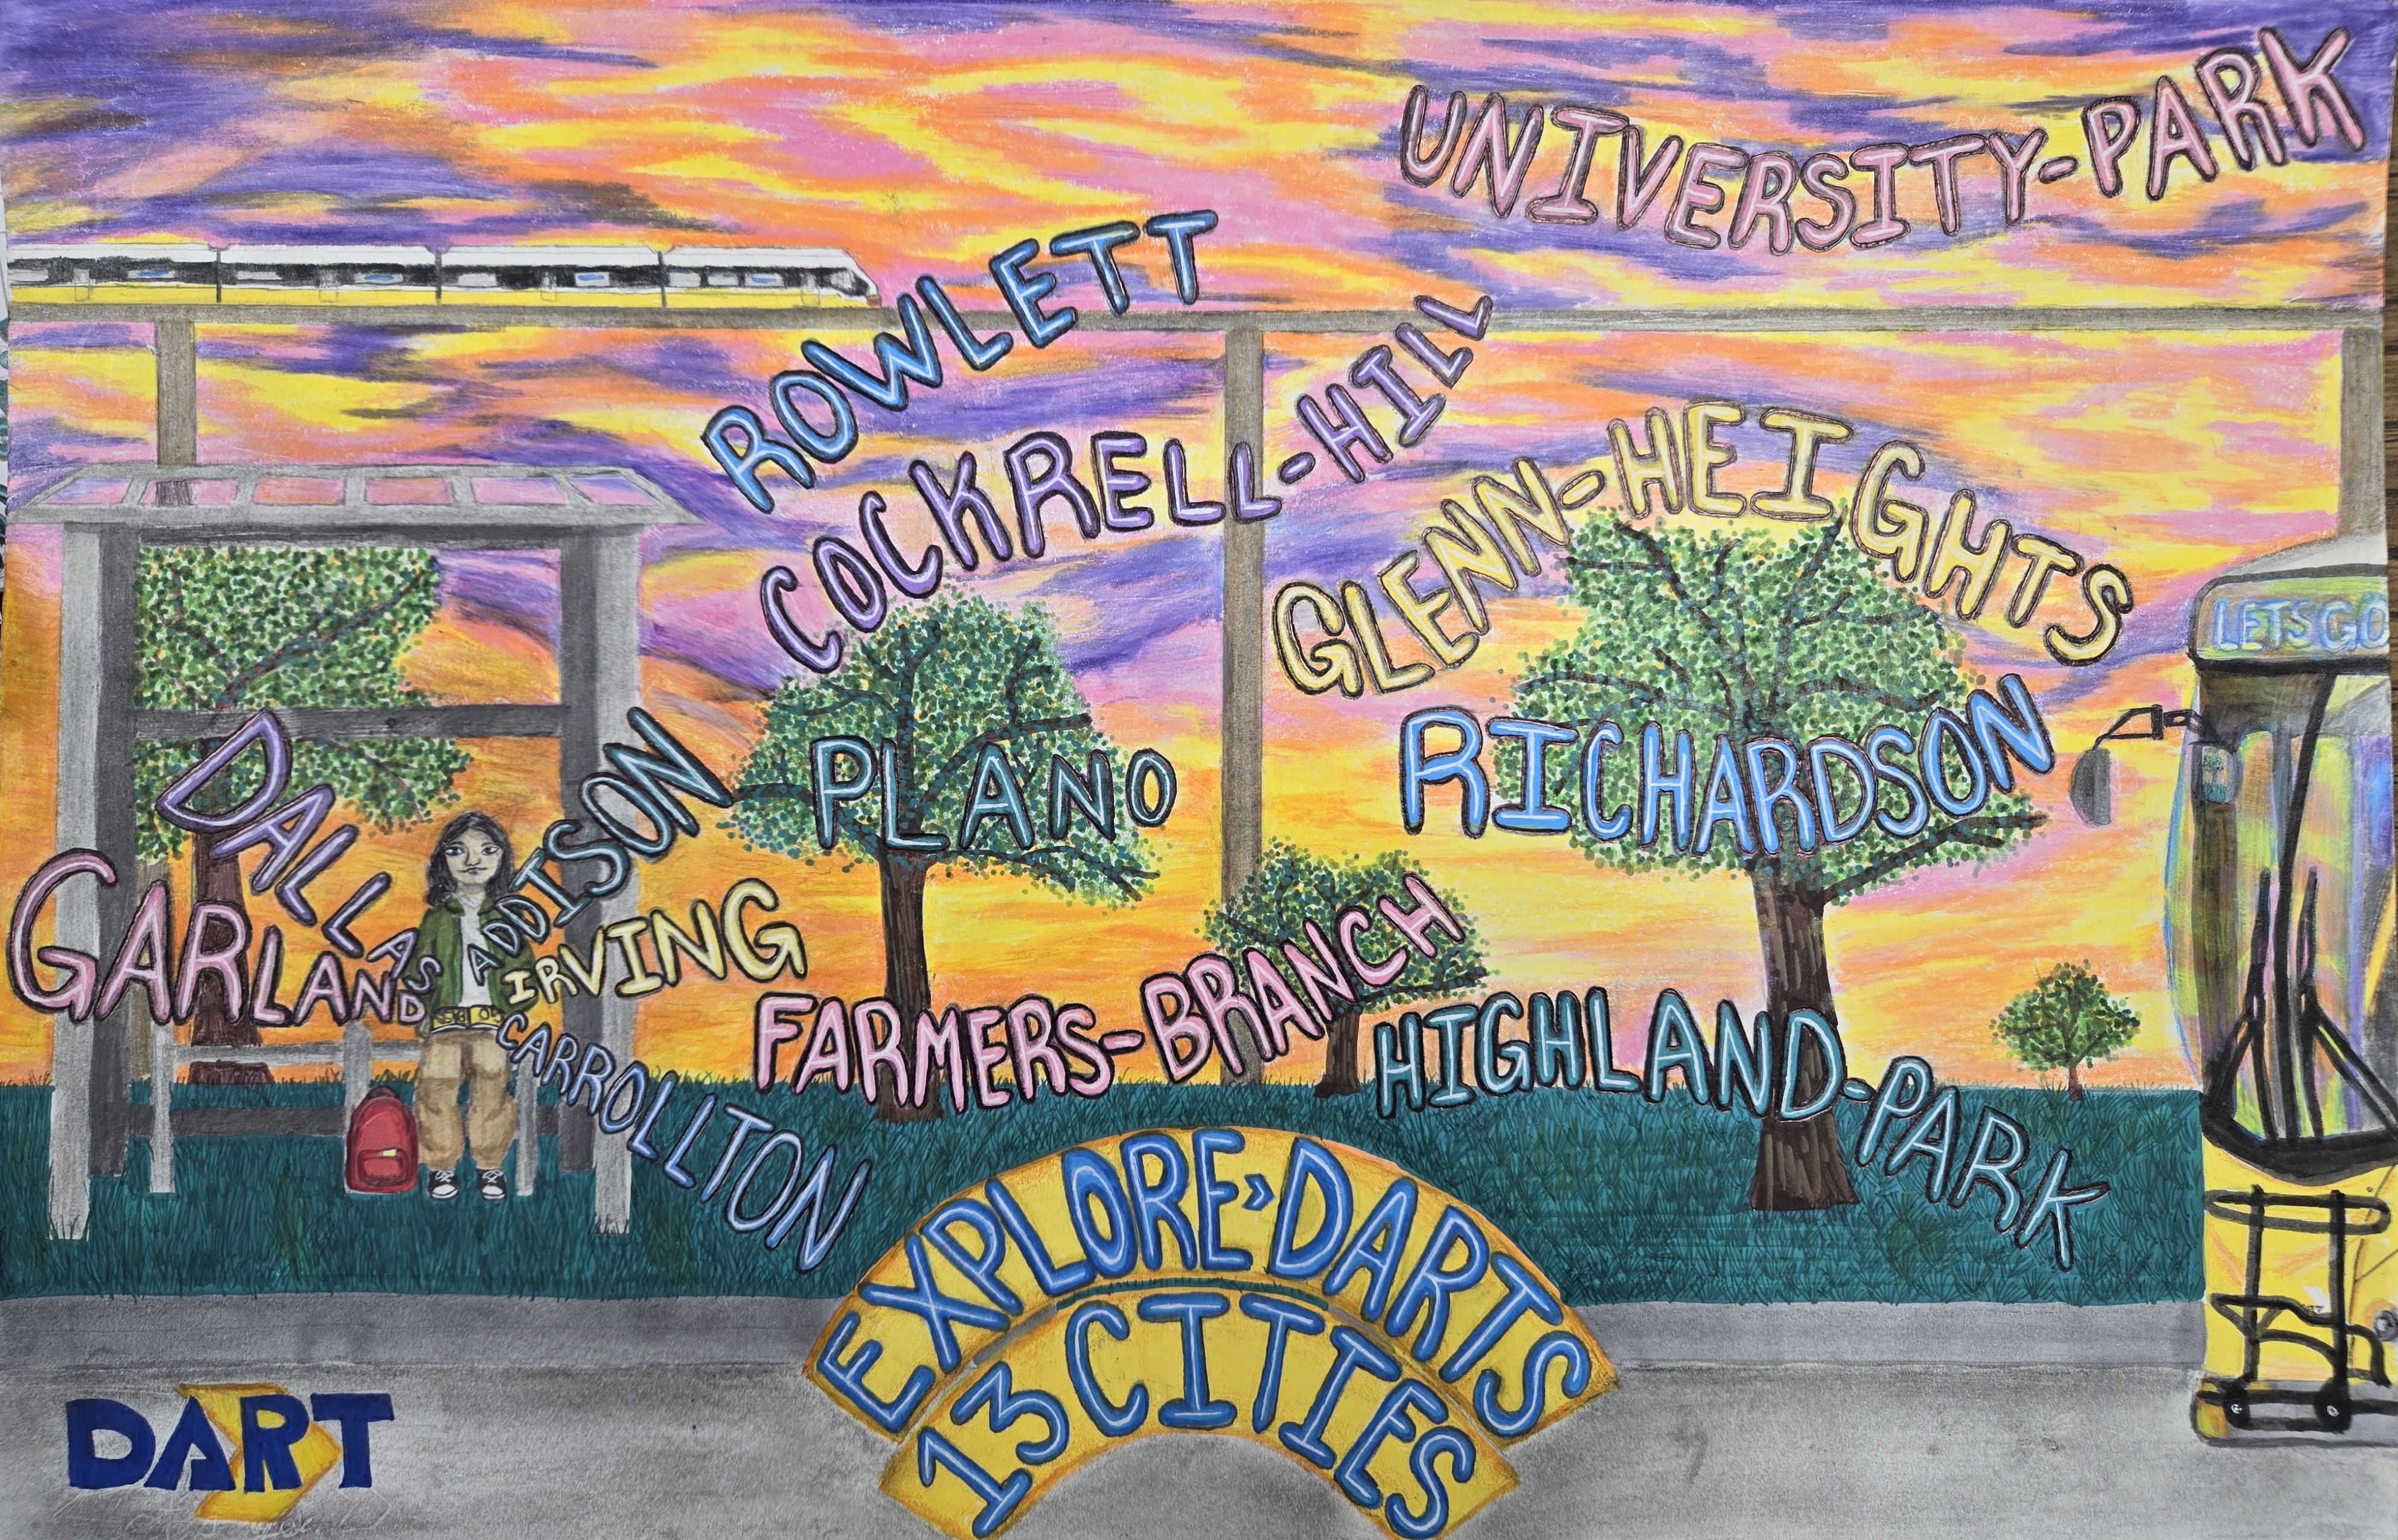 UNIVERSITY-PARK
ROWLETT
COCKRELL-HILL
GLENN-HEIGHTS
LETS GO
RICHARDSON
PLANO
DALLAS
ADDISON
GARLAND
IRVING
FARMERS-BRANCH
HIGHLAND-PARK
CARROLLTON
EXPLORE>DARTS
13 CITIES
DART